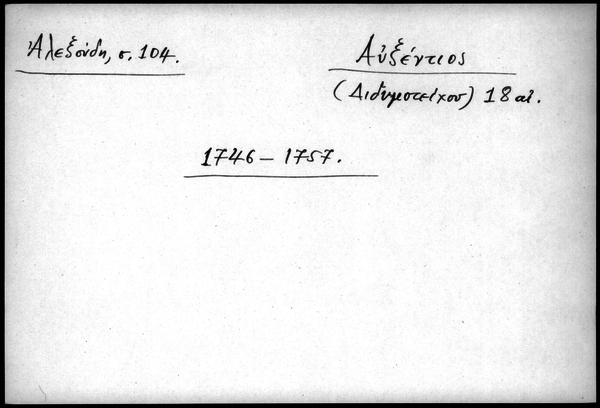 Ἀλεξούδη, σ. 104.
Αὐξέντιος
(Διδυμοτείχου) 18 αἰ.
1746 – 1757.